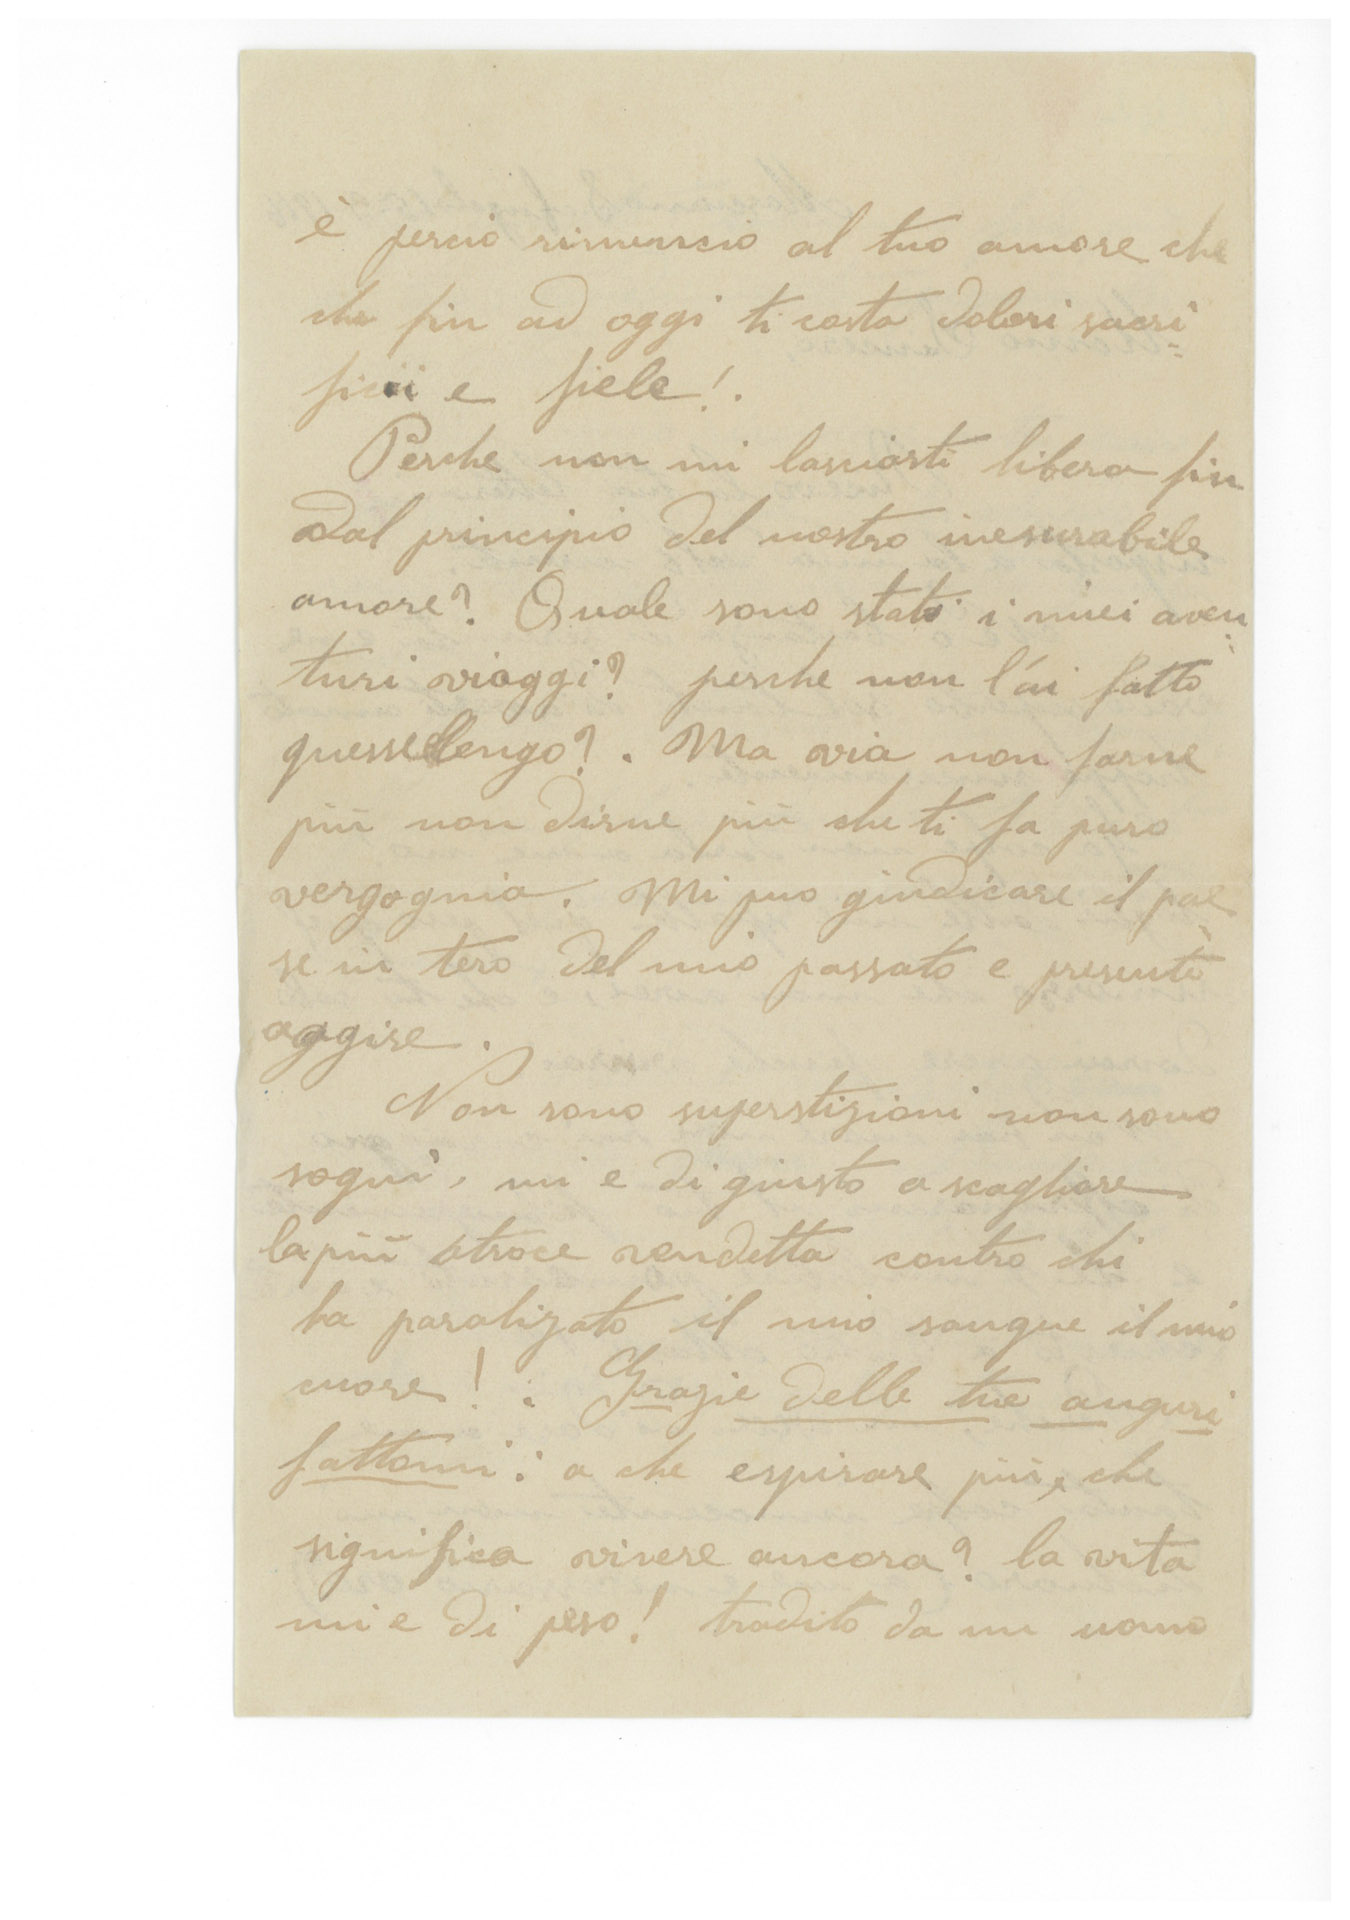 è perciò rinuncio al tuo amore che
che fin ad oggi ti costa dolori sacri=
ficii e fiele!.
Perche non mi lasciasti libera fin
dal principio del nostro inesurabile
amore? Quale sono stati i miei aven
turi viaggi? perche non l'ai fatto
quesse? . Ma via non farne
più non dirne più che ti fa puro
vergognia. Mi puo giudicare il pae
se in tero del mio passato e presente
aggire.
Non sono superstizioni non sono
sogni, mi e di giusto a scagliare
la più atroce vendetta contro chi
ha paralizato il mio sangue il mio
cuore! . Grazie delle tue auguri
fattomi: a che espirare più, che
significa vivere ancora? la vita
mi e di peso! tradito da un uomo